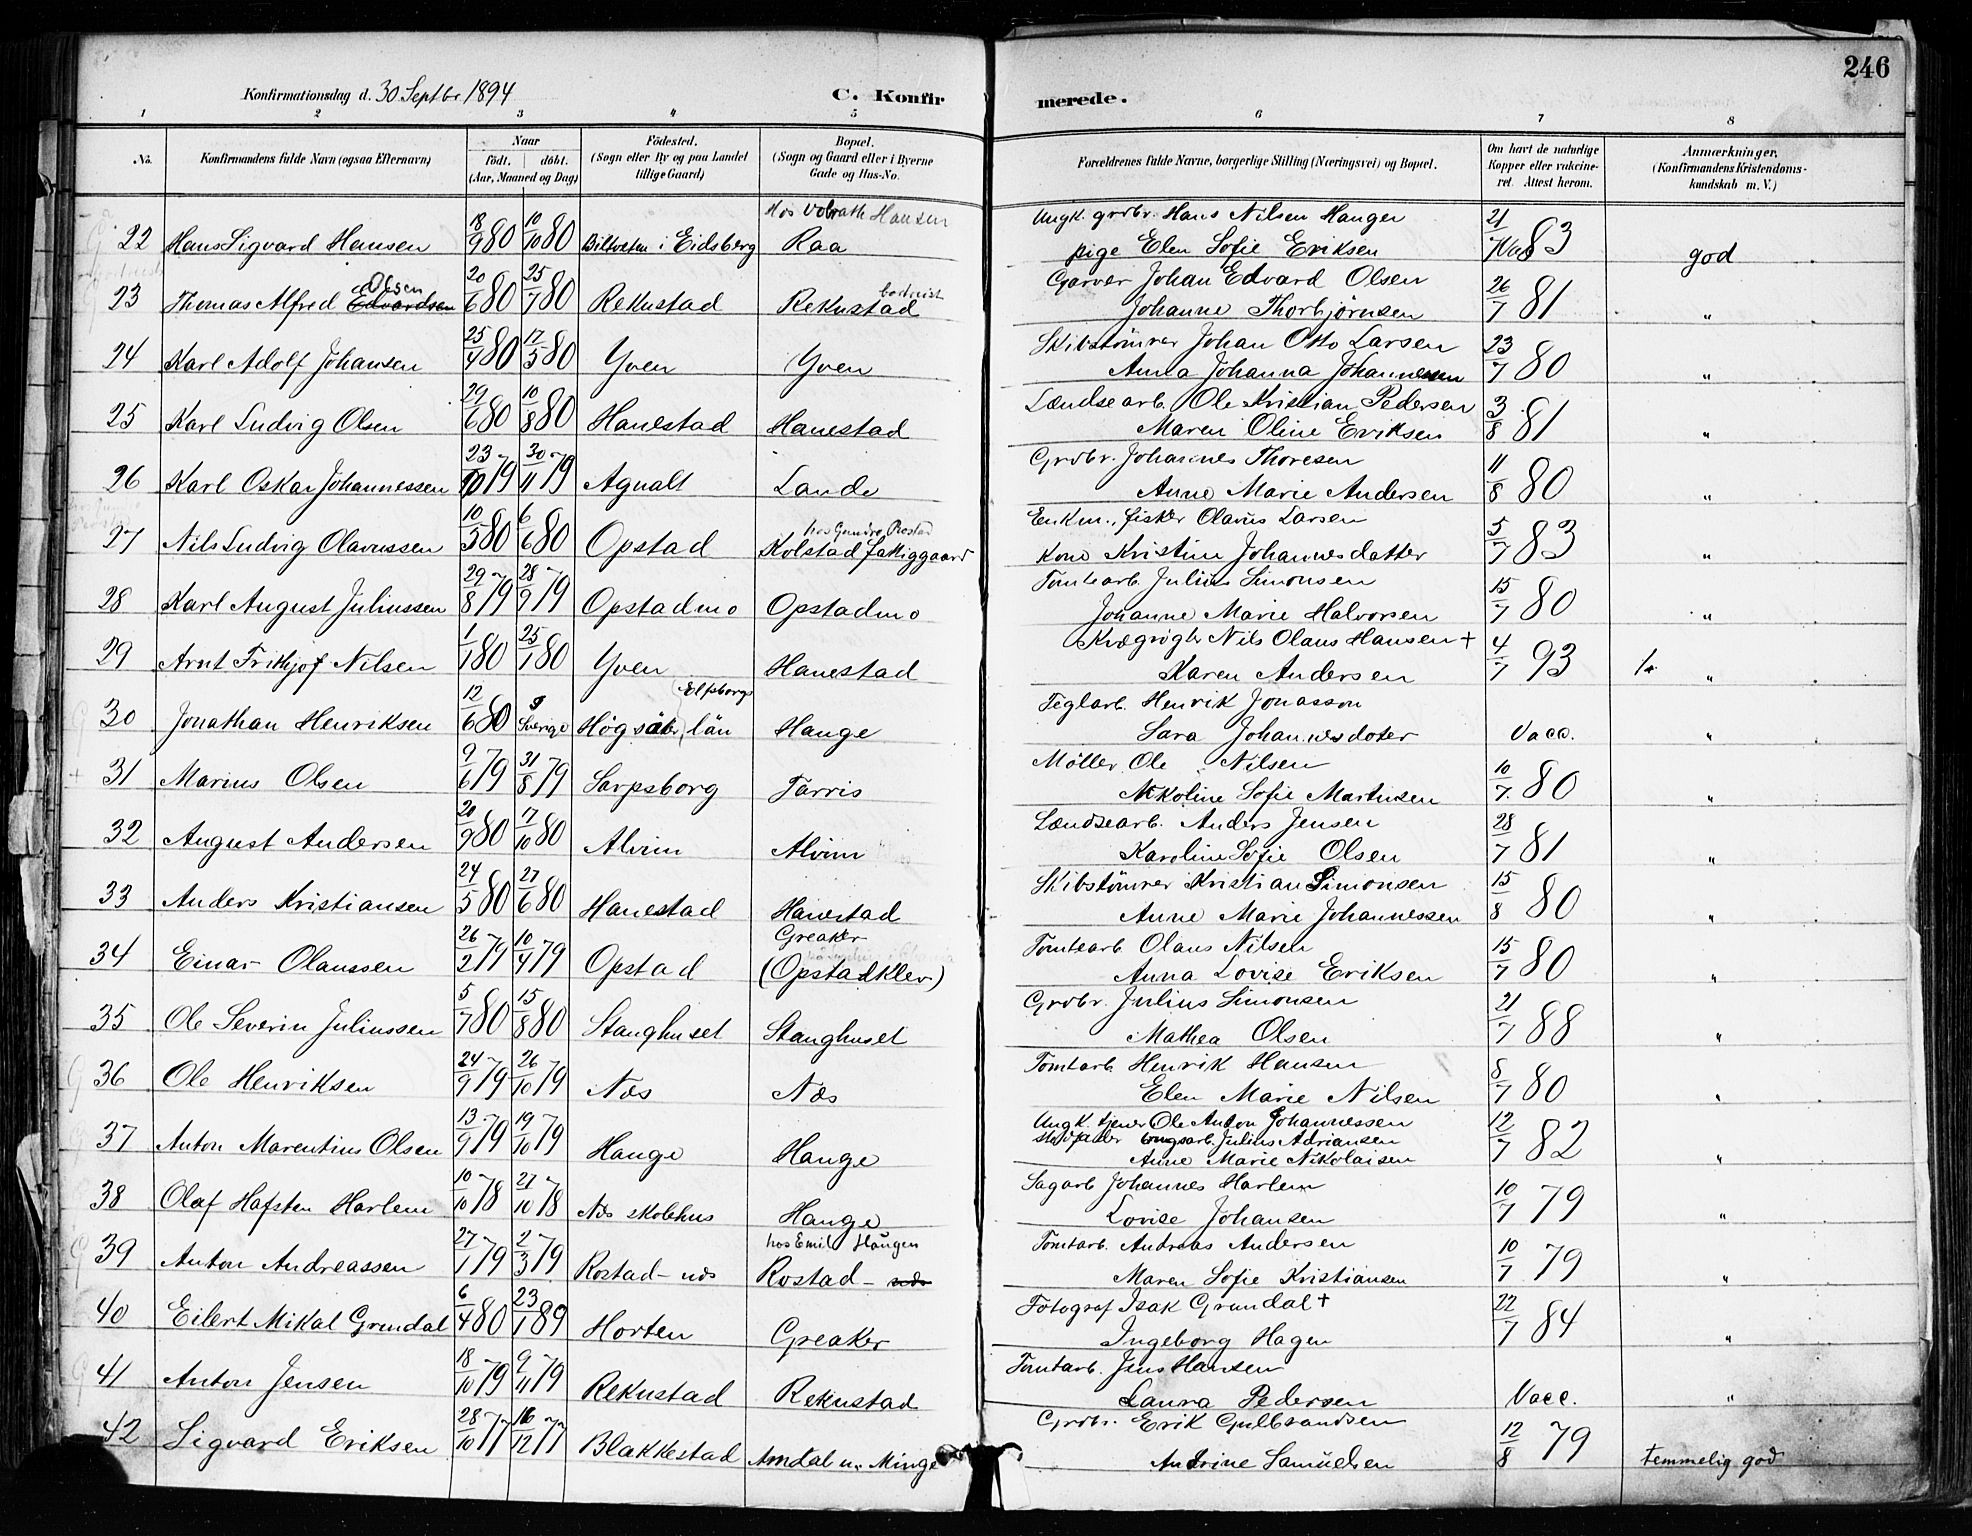 246
Konfirmationsdag d. 30 Septbr 1894 C. Konfir merede.
1 2 3 4 5 6 7 8
No. Konfirmandens fulde Navn (ogsaa Efternavn) Naar födt. döbt. (Aar, Maaned og Dag) Födested. (Sogn eller By og paa Landet tillige Gaard) Bopæl. (Sogn og Gaard eller i Byerne Gade og Hus-No. Forældrenes fulde Navne, borgerlige Stilling (Næringsvei) og Bopæl. Om havt de naturlige Kopper eller vakcineret. Attest herom. Anmærkninger, (Konfirmandens Kristendomskundskab m. V.)
Hos Volrath Hansen Ungk. grdbr. Hans Nilsen Hauger
22 Hans Sigvard Hansen 18/9 80 10/10 80 i Eidsberg Raa pige Elen Sofie Eriksen 21/7 83 god
Olsen Garver Johan Edvard Olsen
23 Thomas Alfred Edvardsen 20/6 80 25/7 80 Rekustad Rekustad Johanne Thorbjörnsen 26/7 81 "
Skibstömrer Johan Otto Larsen
24 Karl Adolf Johansen 25/4 80 17/5 80 Yven Yven Anna Johanna Johannesen 23/7 80 "
Lændsearb. Ole Kristian Pedersen
25 Karl Ludvig Olsen 29/6 80 10/8 80 Hanestad Hanestad Maren Oline Eriksen 3/8 81 "
Grdbr. Johannes Thoresen
26 Karl Oskar Johannessen 23/10 79 30/11 79 Agnalt Lande Anne Marie Andersen 11/8 80 "
hos Gundro Prestad Enkm., fisker Olavus Larsen
27 Nils Ludvig Olavussen 10/5 80 6/6 80 Opstad Kolstad fattiggaard Kone Kristine Johannesdatter 5/7 83 "
Tomtearb. Julius Simonsen
28 Karl August Juliussen 29/8 79 28/9 79 Opstadmo Opstadmo Johanne Marie Halvorsen 15/7 80 "
Kvægrögter Nils Olaus Hansen +
29 Arnt Frithjof Nilsen 1/1 80 25/1 80 Yven Hanestad Karen Andersen 4/7 93 "
Elfsborgs Teglarb. Henrik Jonasson
30 Jonathan Henriksen 12/6 80 Sverige Högsäter, län Hauge Sara Johannesdoter Vacc. "
Möller Ole Nilsen
31 Marius Olsen 9/6 79 31/8 79 Sarpsborg Tarris Nikoline Sofie Martinsen 10/7 80 "
Lændsearb. Anders Jensen
32 August Andersen 20/9 80 17/10 80 Alvim Alvim Karoline Sofie Olsen 28/7 81 "
Skibstömrer Kristian Simonsen
33 Anders Kristiansen 24/5 80 27/6 80 Hanestad Hanestad Anne Marie Johannessen 15/8 80 "
Greaker Tomtearb. Olaus Nilsen
34 Einar Olaussen 26/2 79 10/4 79 Opstad (Opstadklev) Anna Lovise Eriksen 15/7 80 "
Grdbr. Julius Simonsen
35 Ole Severin Juliussen 5/7 80 15/8 80 Stanghuset Stanghuset Mathea Olsen 21/7 88 "
Tomtarb Henrik Hansen
36 Ole Henriksen 24/9 79 26/10 79 Næs Næs Elen Marie Nilsen 8/7 80 "
Ungk. tjener Ole Anton Johannessen
stedfader Julius Adriansen
37 Anton Marentius Olsen 13/9 79 19/10 79 Hauge Hauge Anne Marie Nikolaisen 12/7 82 "
Sagarb Johannes Harlem
38 Olaf Hafsten Harlem 10/10 78 27/10 78 Næs skolehus Hauge Lovise Johansen 10/7 79 "
hos Emil Haugen Tomtarb. Andreas Andersen
39 Anton Andreassen 27/1 79 2/3 79 Rostad - næs Rostad - næs Maren Sofie Kristiansen 10/7 79 "
Fotograf Isak Grundal +
40 Eilert Mikal Grundal 6/4 80 23/1 89 Horten Greaker Ingeborg Hagen 22/7 84 "
Tomtarb. Jens Hansen
41 Anton Jensen 18/10 79 9/11 79 Rekustad Rekustad Laura Pedersen Vacc. "
Grdbr. Erik Gulbrandsen
42 Sigvard Eriksen 28/10 77 16/12 77 Blakkestad Arndal u. Minge Andrine Samuelsen 12/8 79 temmelig god